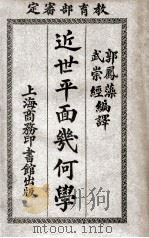 教育部審定
郭鳳藻
武崇經編譯
近世平面幾何學
上海商務印書館出版